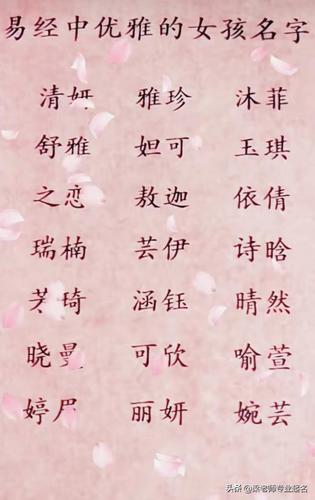 易经中优雅的女孩名字
清妍 雅珍 沐菲
舒雅 妲可 玉琪
之恋 敖迦 依倩
瑞楠 芸伊 诗晗
琦 涵钰 晴然
晓曼 可欣 喻萱
婷 丽妍 婉芸
头条 @梁老师专业起名